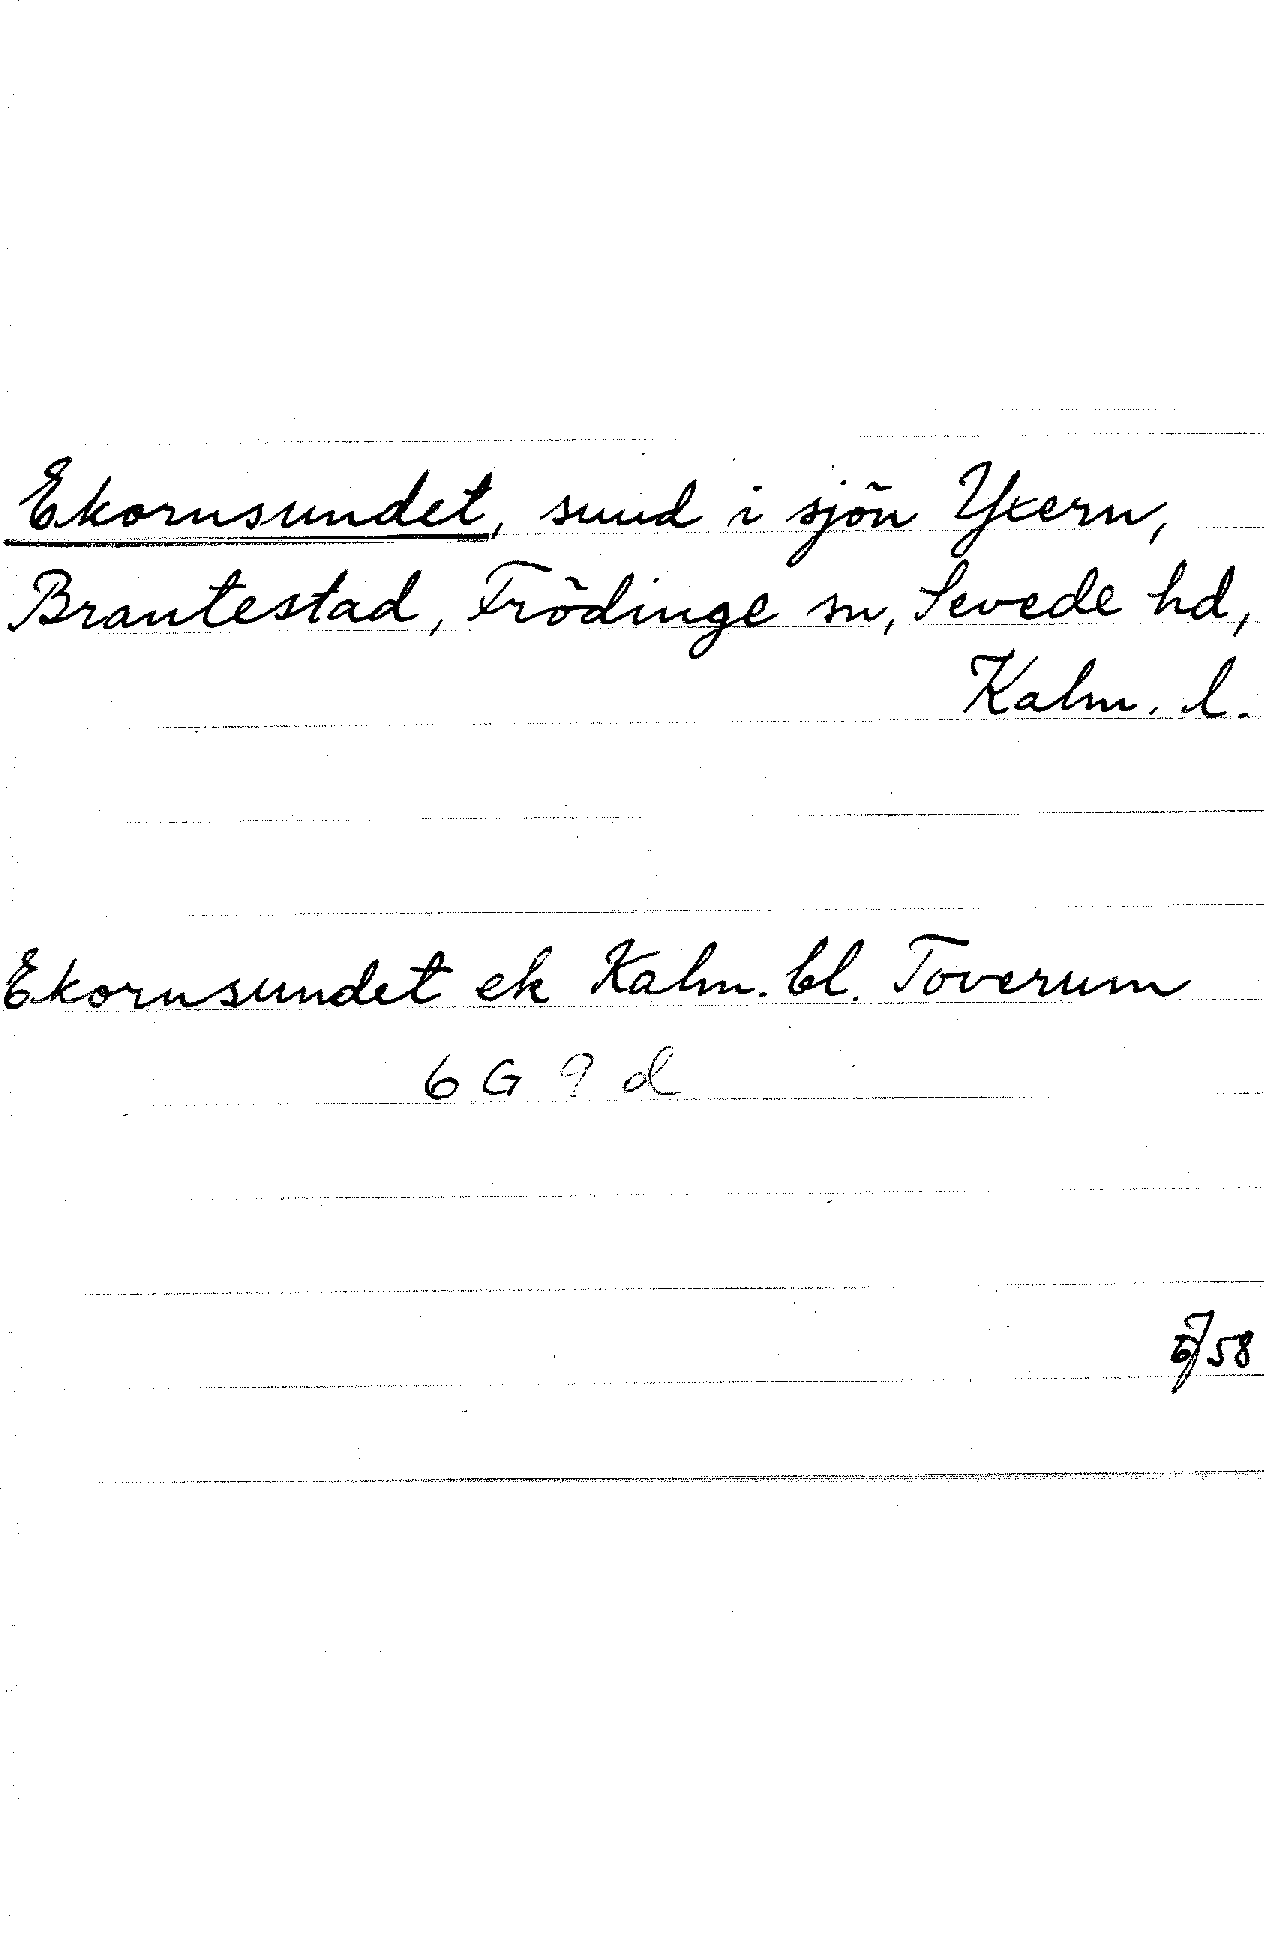 Ekornsundet, sund i sjön Yxern,
Brantestad, Frödinge sn, Sevede hd,
Kalm. l.
Ekornsundet ek Kalm. bl. Toverum
6 G 9 d
58